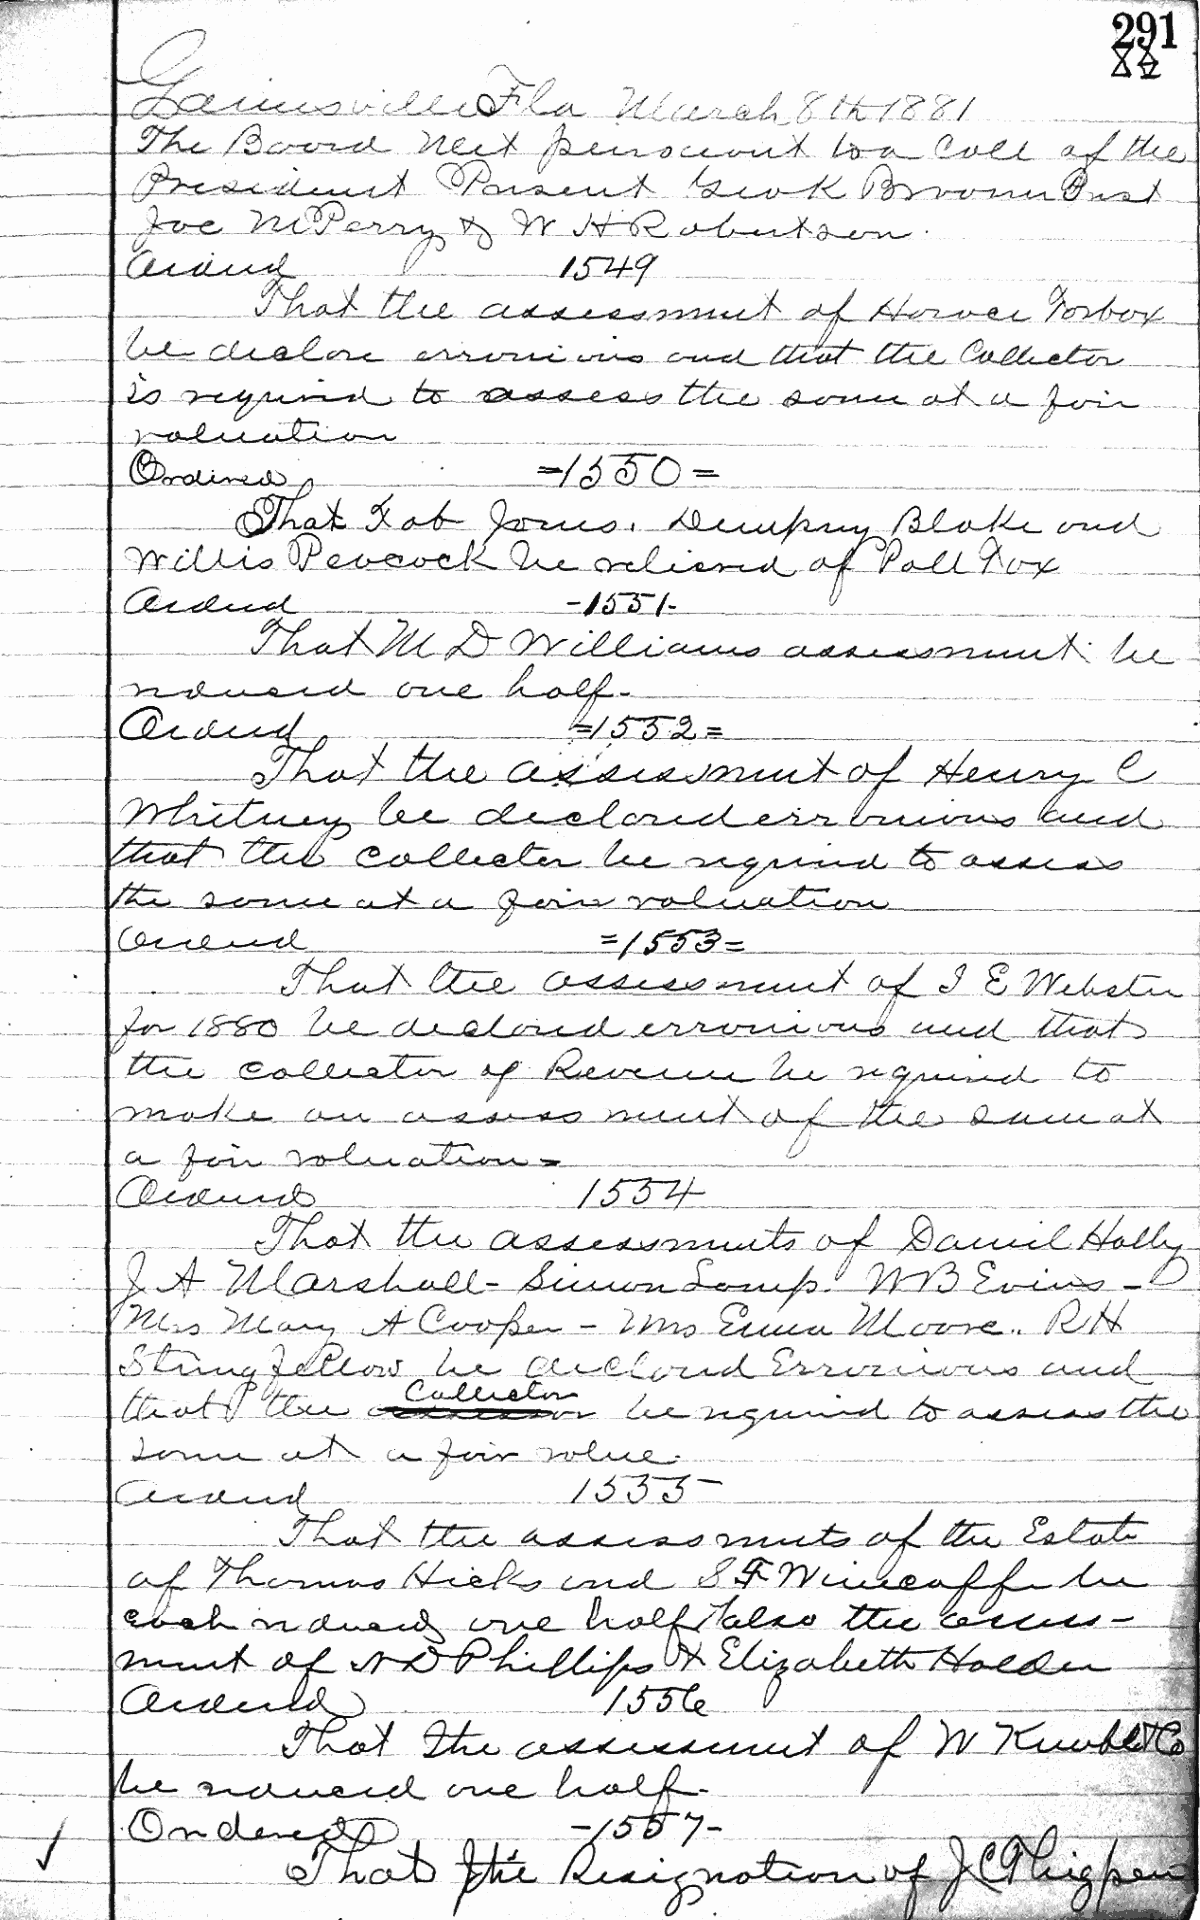 291
Gainesville Fla March 8th 1881
The Board Met pursuant to a Call of the
President Present Geo K Broome Prst
Joe M Perry & W H Robertson.
Ordered 1549
That the assessment of Horace
be declare erronious and that the Collector
is required to assess the same at a fair
valuation
Ordered =1550=
That Jones. Dempsey Blake and
Willis Peacock be relieved of Poll Tax
Ordered -1551-
That M D Williams assessment be
reduced one half-
Ordered =1552=
That the assessment of Henry C
Whitney be declared erronious and
that the Collector be required to assess
the same at a fair valuation
Ordered =1553=
That the assessment of I E Webster
for 1880 be declared erronious and that
the Collector of Revenue be required to
make an assessment of the same at
a fair valuation=
Ordered 1554
That the assessments of Daniel Holly
J A Marshall - Simon Lamp. W B Evins -
Mrs Mary A Cooper - Mrs Emma Moore.. R H
Stringfellow be declared Erronious and
that the Collector be required to assess the
same at a fair value.
Ordered 1555
That the assessments of the Estate
of Thomas Hicks and S F Winecoff be
each reduced one half also the assess-
ment of N D Phillips & Elizabeth Holder
Ordered 1556
That the assessment of W & Co
be reduced one half-
Ordered -1557-
That the Resignation of J C Thigpen